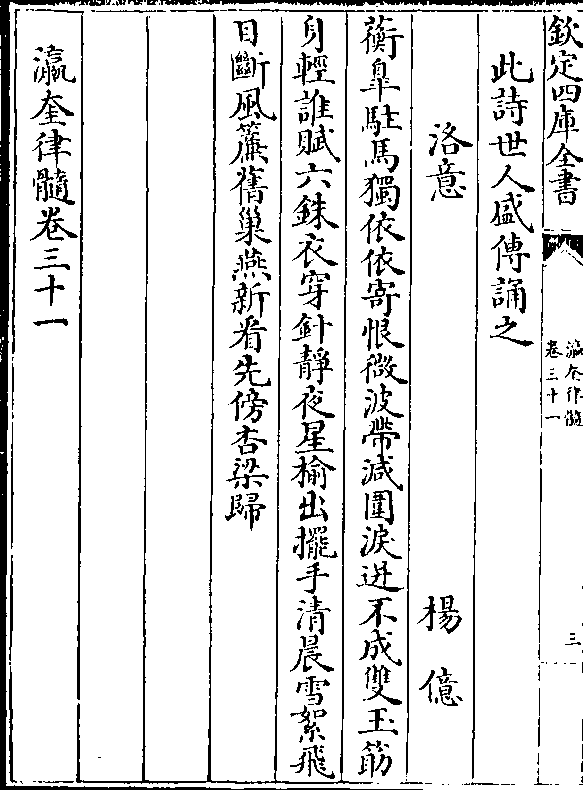 欽定四庫全書
瀛奎律髓
卷三十一
三
此詩世人盛傳誦之
洛意 楊億
蘅臯駐馬獨依依寄恨微波帶減圍淚迸不成雙玉筯
身輕誰賦六銖衣穿針靜夜星榆出擺手清晨雪絮飛
目斷風簾舊巢燕新看先傍杏梁歸
瀛奎律髓卷三十一